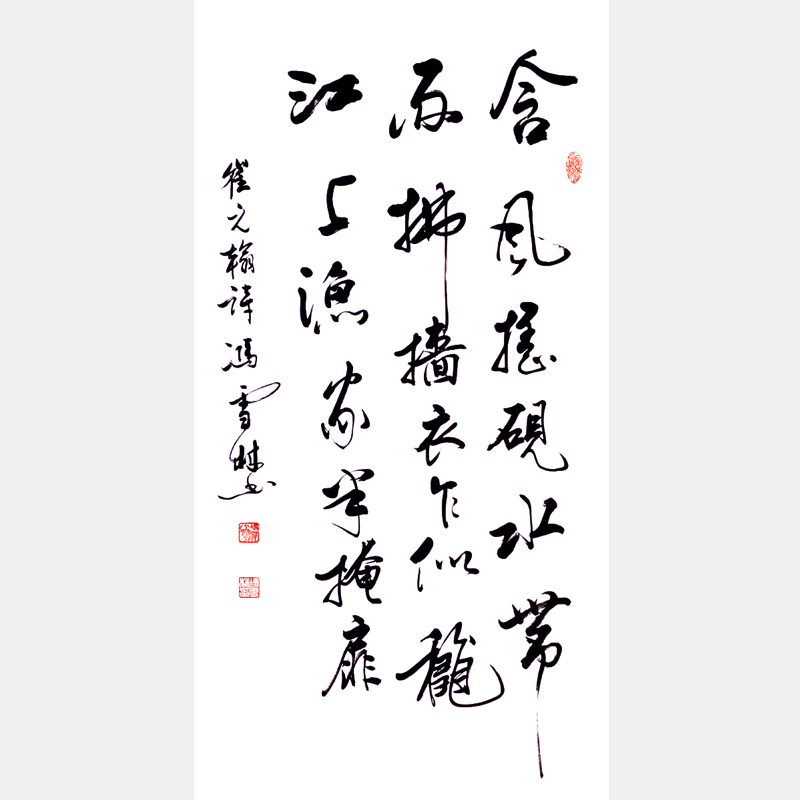 含風搖硯水帶
雨拂墻衣乍似龝
江上漁家半掩扉
崔元翰詩馮雪林書